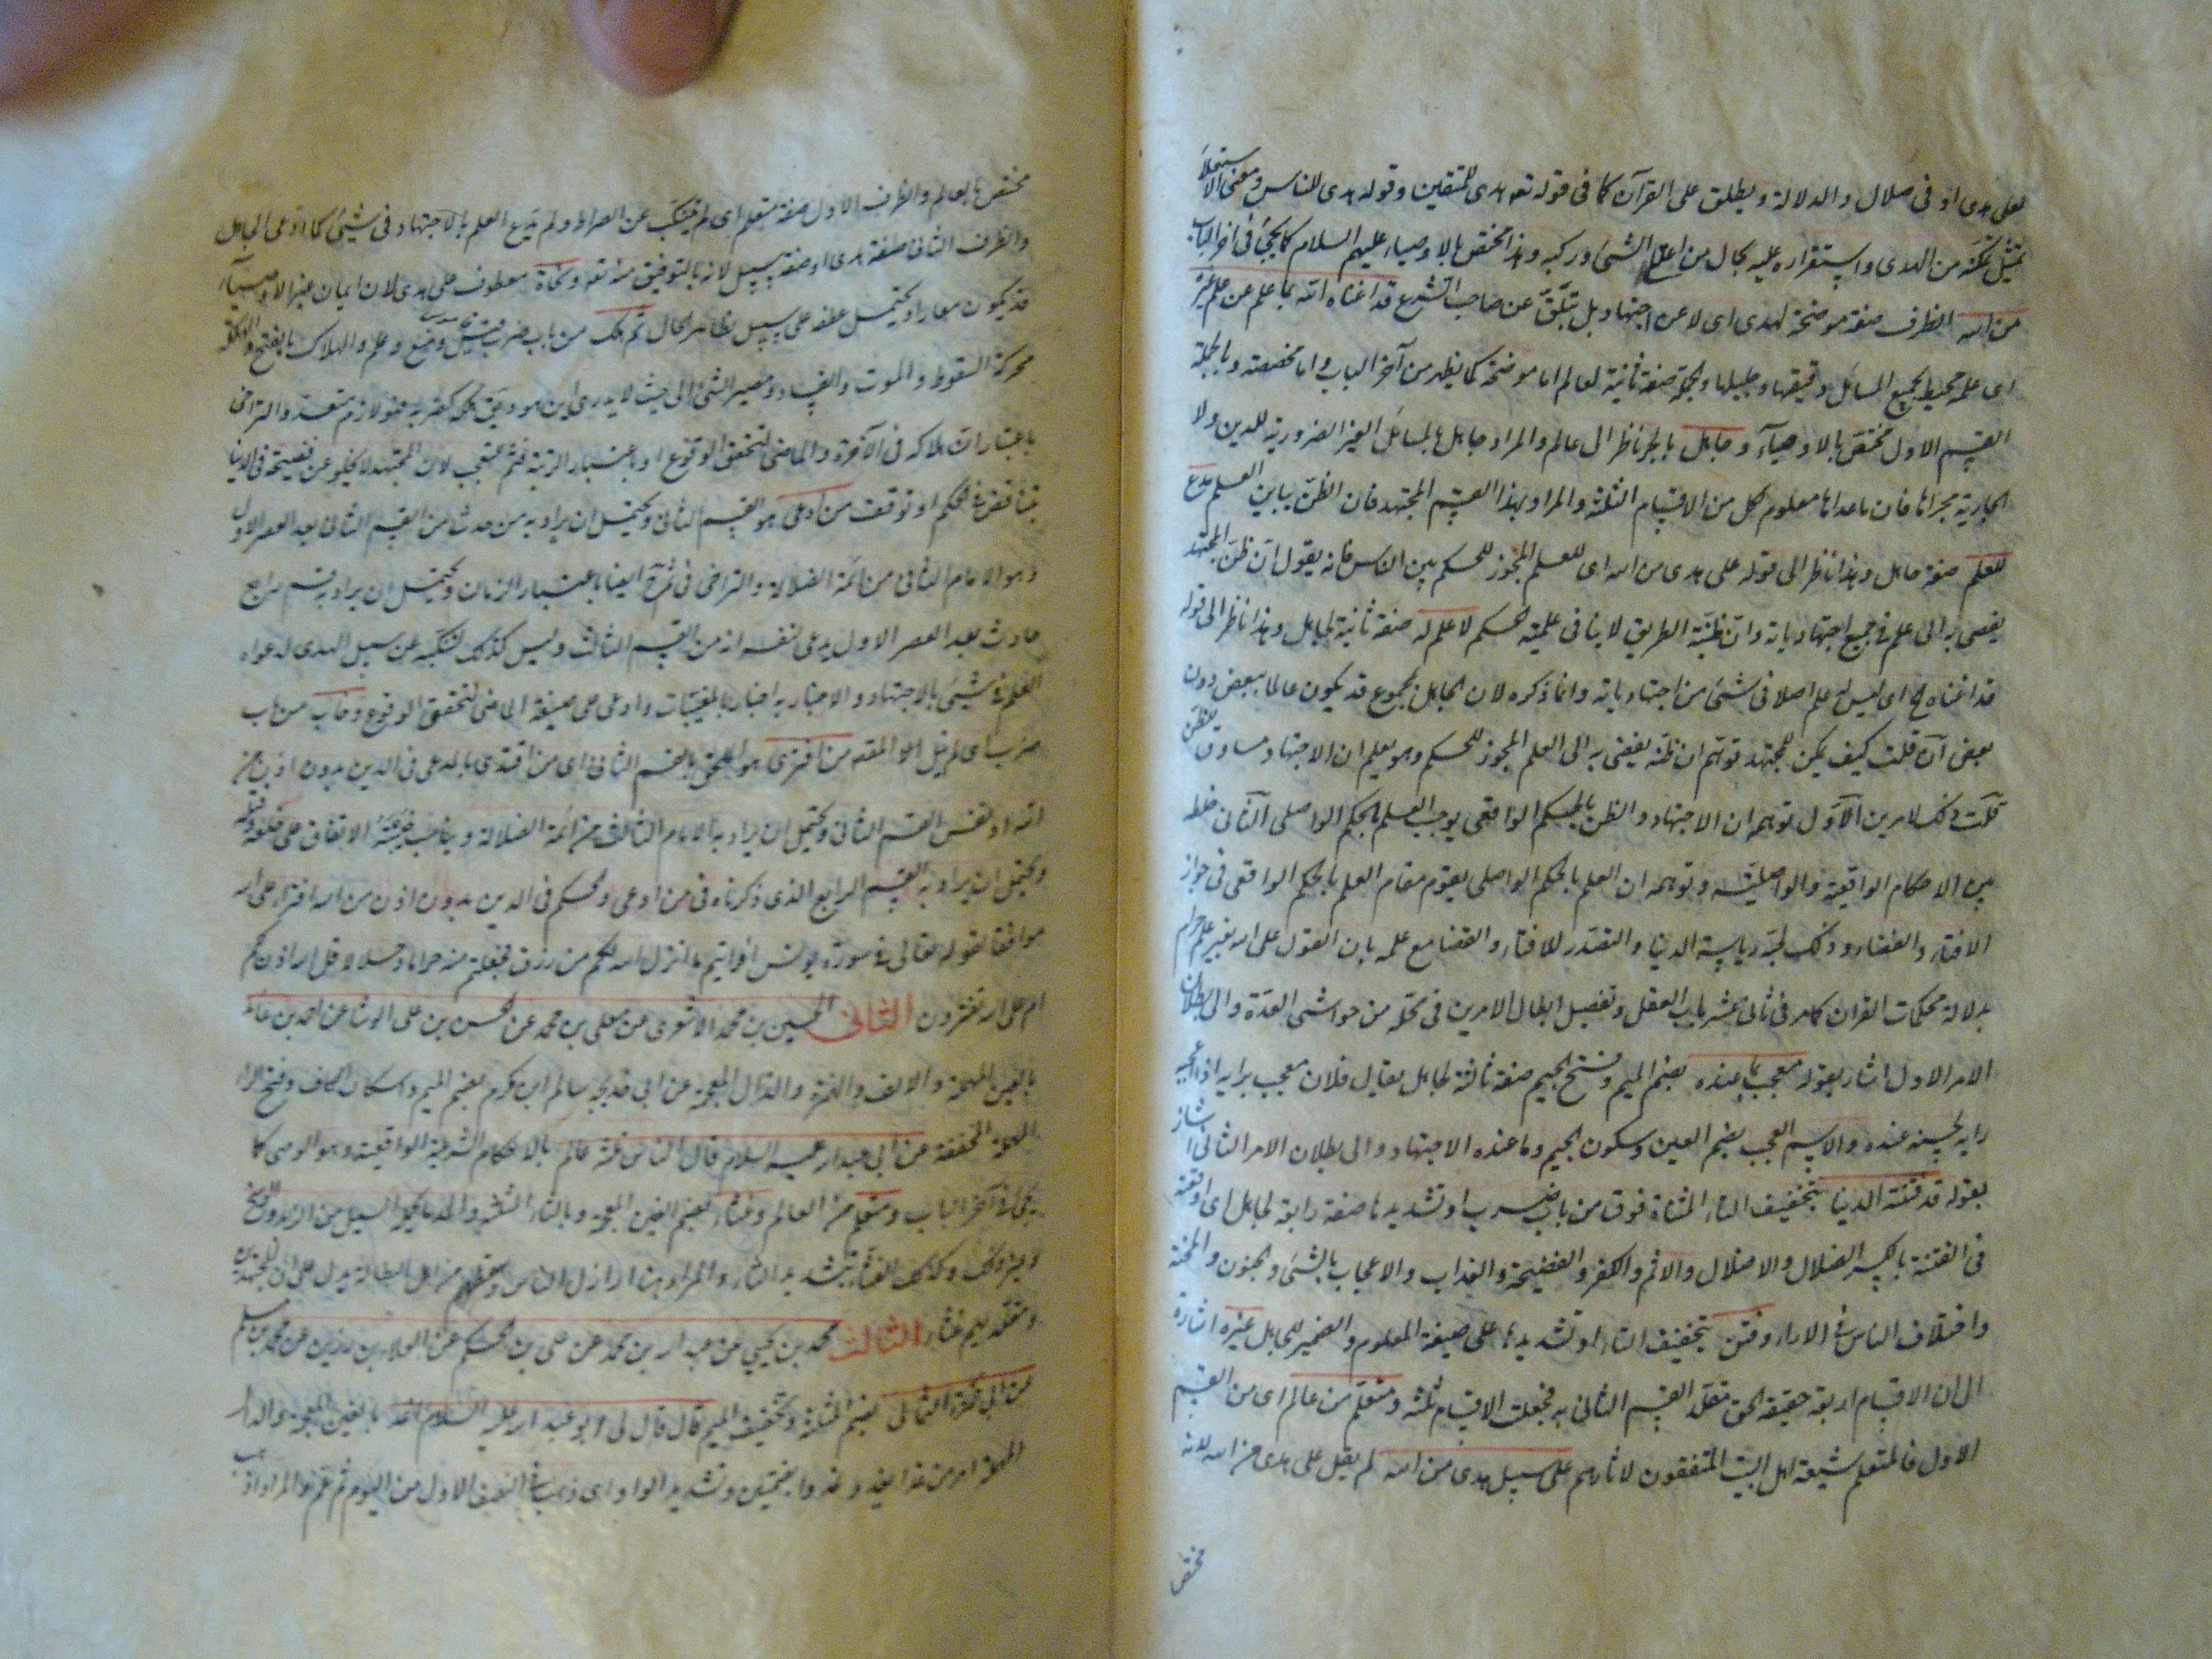 لعلى هدى او فى ضلال والدلالة ويطلق على القرآن كما فى قوله تعو هدى للمتقين وقوله هدى للناس ومعنى الاستعلاء
تمثيل تمكنه من الهدى واستقراره عليه بحال من اعتلى الشئ وركبه وهذا مختص بالاوصياء عليهم السلام كما يجئ فى آخر الباب
من الله الظرف صفة موضحة لهدى اى لا عن اجتهاد بل بتلقّ عن صاحب الشرع قد اغناه الله بما علم عن علم غيره
اى علمه محيط بجميع المسائل دقيقها وجليلها والجملة صفة ثانية لعالم اما موضحة كما يظهر من آخر الباب واما مخصصة وبالجملة
القسم الاول مختص بالاوصياء وجاهل بالجر ناظر الى عالم والمراد جاهل بالمسائل الغير الضرورية للدين ولا
الجارية مجراها فان ماعداها معلوم لكل من الاقسام الثلثة والمراد بهذا القسم المجتهد فان الظن يباين العلم مدع
للعلم صفة جاهل وهذا ناظر الى قوله على هدى من الله اى للعلم المجوز للحكم بين الناس فانه يقول ان ظن المجتهد
يفضى به الى علم فى جميع اجتهادياته وان ظنية الطريق لا ينافى علمية الحكم لا علم له صفة ثانية لجاهل وهذا ناظر الى قوله
قد اغناه الخ اى ليس له علم اصلا فى شئ من اجتهادياته وانما ذكره لان الجاهل بمجموع قد يكون عالما ببعض دون
بعض ان قلت كيف يمكن للمجتهد توهم ان ظنه يفضى به الى العلم المجوز للحكم وهو يعلم ان الاجتهاد مساوق للظن
قلت ذلك لامرين الاول توهمه ان الاجتهاد والظن بالحكم الواقعى يوجب العلم بالحكم الواصلى الثانى خلط
بين الاحكام الواقعية والواصلية وتوهمه ان العلم بالحكم الواصلى يقوم مقام العلم بالحكم الواقعى فى جواز
الافتاء والقضاء وذلك لحبّه رياسة الدنيا والتصدر للافتاء والقضا مع علمه بان القول على الله بغير علم حرام
بدلالة محكمات القران كما مر فى ثانى عشر باب العقل وتفصيل ابطال الامرين فى محله من حواشى العدة والى بطلان
الامر الاول اشار بقوله معجب بما عنده بضم الميم وفتح الجيم صفة ثالثة لجاهل يقال فلان معجب برايه اذا اعجبه
رايه لحسنه عنده والاسم العجب بضم العين وسكون الجيم وما عنده الاجتهاد والى بطلان الامر الثانى اشار
بقوله قد فتنته الدنيا بتخفيف التاء المثناة فوق من باب ضرب او تشديدها صفة رابعة لجاهل اى اوقعته
فى الفتنة بالكسر الضلال والاضلال والاثم والكفر والفضيحة والعذاب والاعجاب بالشئ والجنون والمحنة
واختلاف الناس فى الاراء وفتن بتخفيف التاء او تشديدها على صيغة المعلوم والضمير للجاهل غيره اشارة
الى ان الاقسام اربعة حقيقة الحق مقلّد القسم الثانى به فجعلت الاقسام ثلثة ومتعلم من عالم اى من القسم
الاول فالمتعلم شيعة اهل البيت المتفقون لاثارهم على سبيل هدى من الله لم يقل على هدى من الله لانه
مختص
مختص بالعالم والظرف الاول صفة متعلم اى لم يتنكب عن الصراط ولم يدع العلم بالاجتهاد فى شئ كما ادعى الجاهل
والظرف الثانى صفة هدى او صفة سبيل لانه بالتوفيق منه تعو ونجاة معطوف على هدى لان ايمان غير الاوصياء
قد يكون معارا ويحتمل عطفه على سبيل بظاهر الحال ثم هلك من باب ضرب ومنع وعلم والهلاك بالفتح والهلكة
محركة السقوط والموت والفساد ومصير الشئ الى حيث لا يدرى اين هو وهلك كفر به فهو لازم متعد والتراخى
باعتبار ان هلاكه فى الآخرة والماضى لتحقق الوقوع او باعتبار الرتبة فثم للتعجب لان المجتهد لا يخلو عن فضيحة فى الدنيا
بتناقض فى الحكم او توقف من ادعى هو القسم الثانى ويحتمل ان يراد به من حدث من القسم الثانى بعد العصر الاول
وهو الامام الثانى من ائمة الضلالة والتراخى فى ثم ايضا باعتبار الزمان ويحتمل ان يراد به قسم رابع
حادث بعد العصر الاول يدعى لنفسه انه من القسم الثالث وليس كذلك لتنكبه عن سبيل الهدى لدعواه
العلم فى شئ بالاجتهاد والاخبار به اخبار بالمغيبات وادعى على صيغة الماضى لتحقق الوقوع وخاب من باب
ضرب اى لم ينل المقصد من افترى هو الملحق بالقسم الثانى اى من اقتدى بالمدعى فى الدين بدون اذن من
الله او نفس القسم الثانى ويحتمل ان يراد به الامام الثالث من ائمة الضلالة ويناسب خيبته الاتفاق على خلعه وقتله
ويحتمل ان يراد به القسم الرابع الذى ذكرناه فى من ادعى والحكم فى الدين بدون اذن من الله افتراء على الله
موافقا لقوله تعالى فى سورة يونس ارايتم ما انزل الله لكم من رزق فجعلتم منه حراما وحلالا قل الله اذن لكم
ام على الله تفترون الثانى الحسين بن محمد الاشعرى عن معلى بن محمد عن الحسن بن على الوشا عن احمد بن عائذ
بالعين المهملة والالف والهمزة والذال المعجمة عن ابى خديجه سالم ابن مكرم بضم الميم واسكان الكاف وفتح الراء
المهملة المخففة عن ابى عبدالله عليه السلام قال الناس ثلثة عالم بالاحكام الشرعية الواقعية وهو الوصى كما
يجئ فى آخر الباب ومتعلم من العالم وغثاء بضم الغين المعجمة وبالثاء المثلثة والمد ما يحمله السيل من الزبد والوسخ
وغيره وكذلك الغثاء بتشديد الثاء والمراد هنا اراذل الناس وسقطهم من اهل البطالة يدل على ان المجتهد
ومقلديهم غثاء الثالث محمد بن يحيى عن عبد الله بن محمد عن على بن الحكم عن العلاء بن رزين عن محمد بن مسلم
عن ابى حمزة الثمالى بضم المثلثة وتخفيف الميم قال قال لى ابو عبد الله عليه السلام اغد بالغين المعجمة والدال
المهملة امر من غدا يغدو غدوا بضمتين وتشديد الواو اى ذهب فى النصف الاول من اليوم ثم عمم والمراد